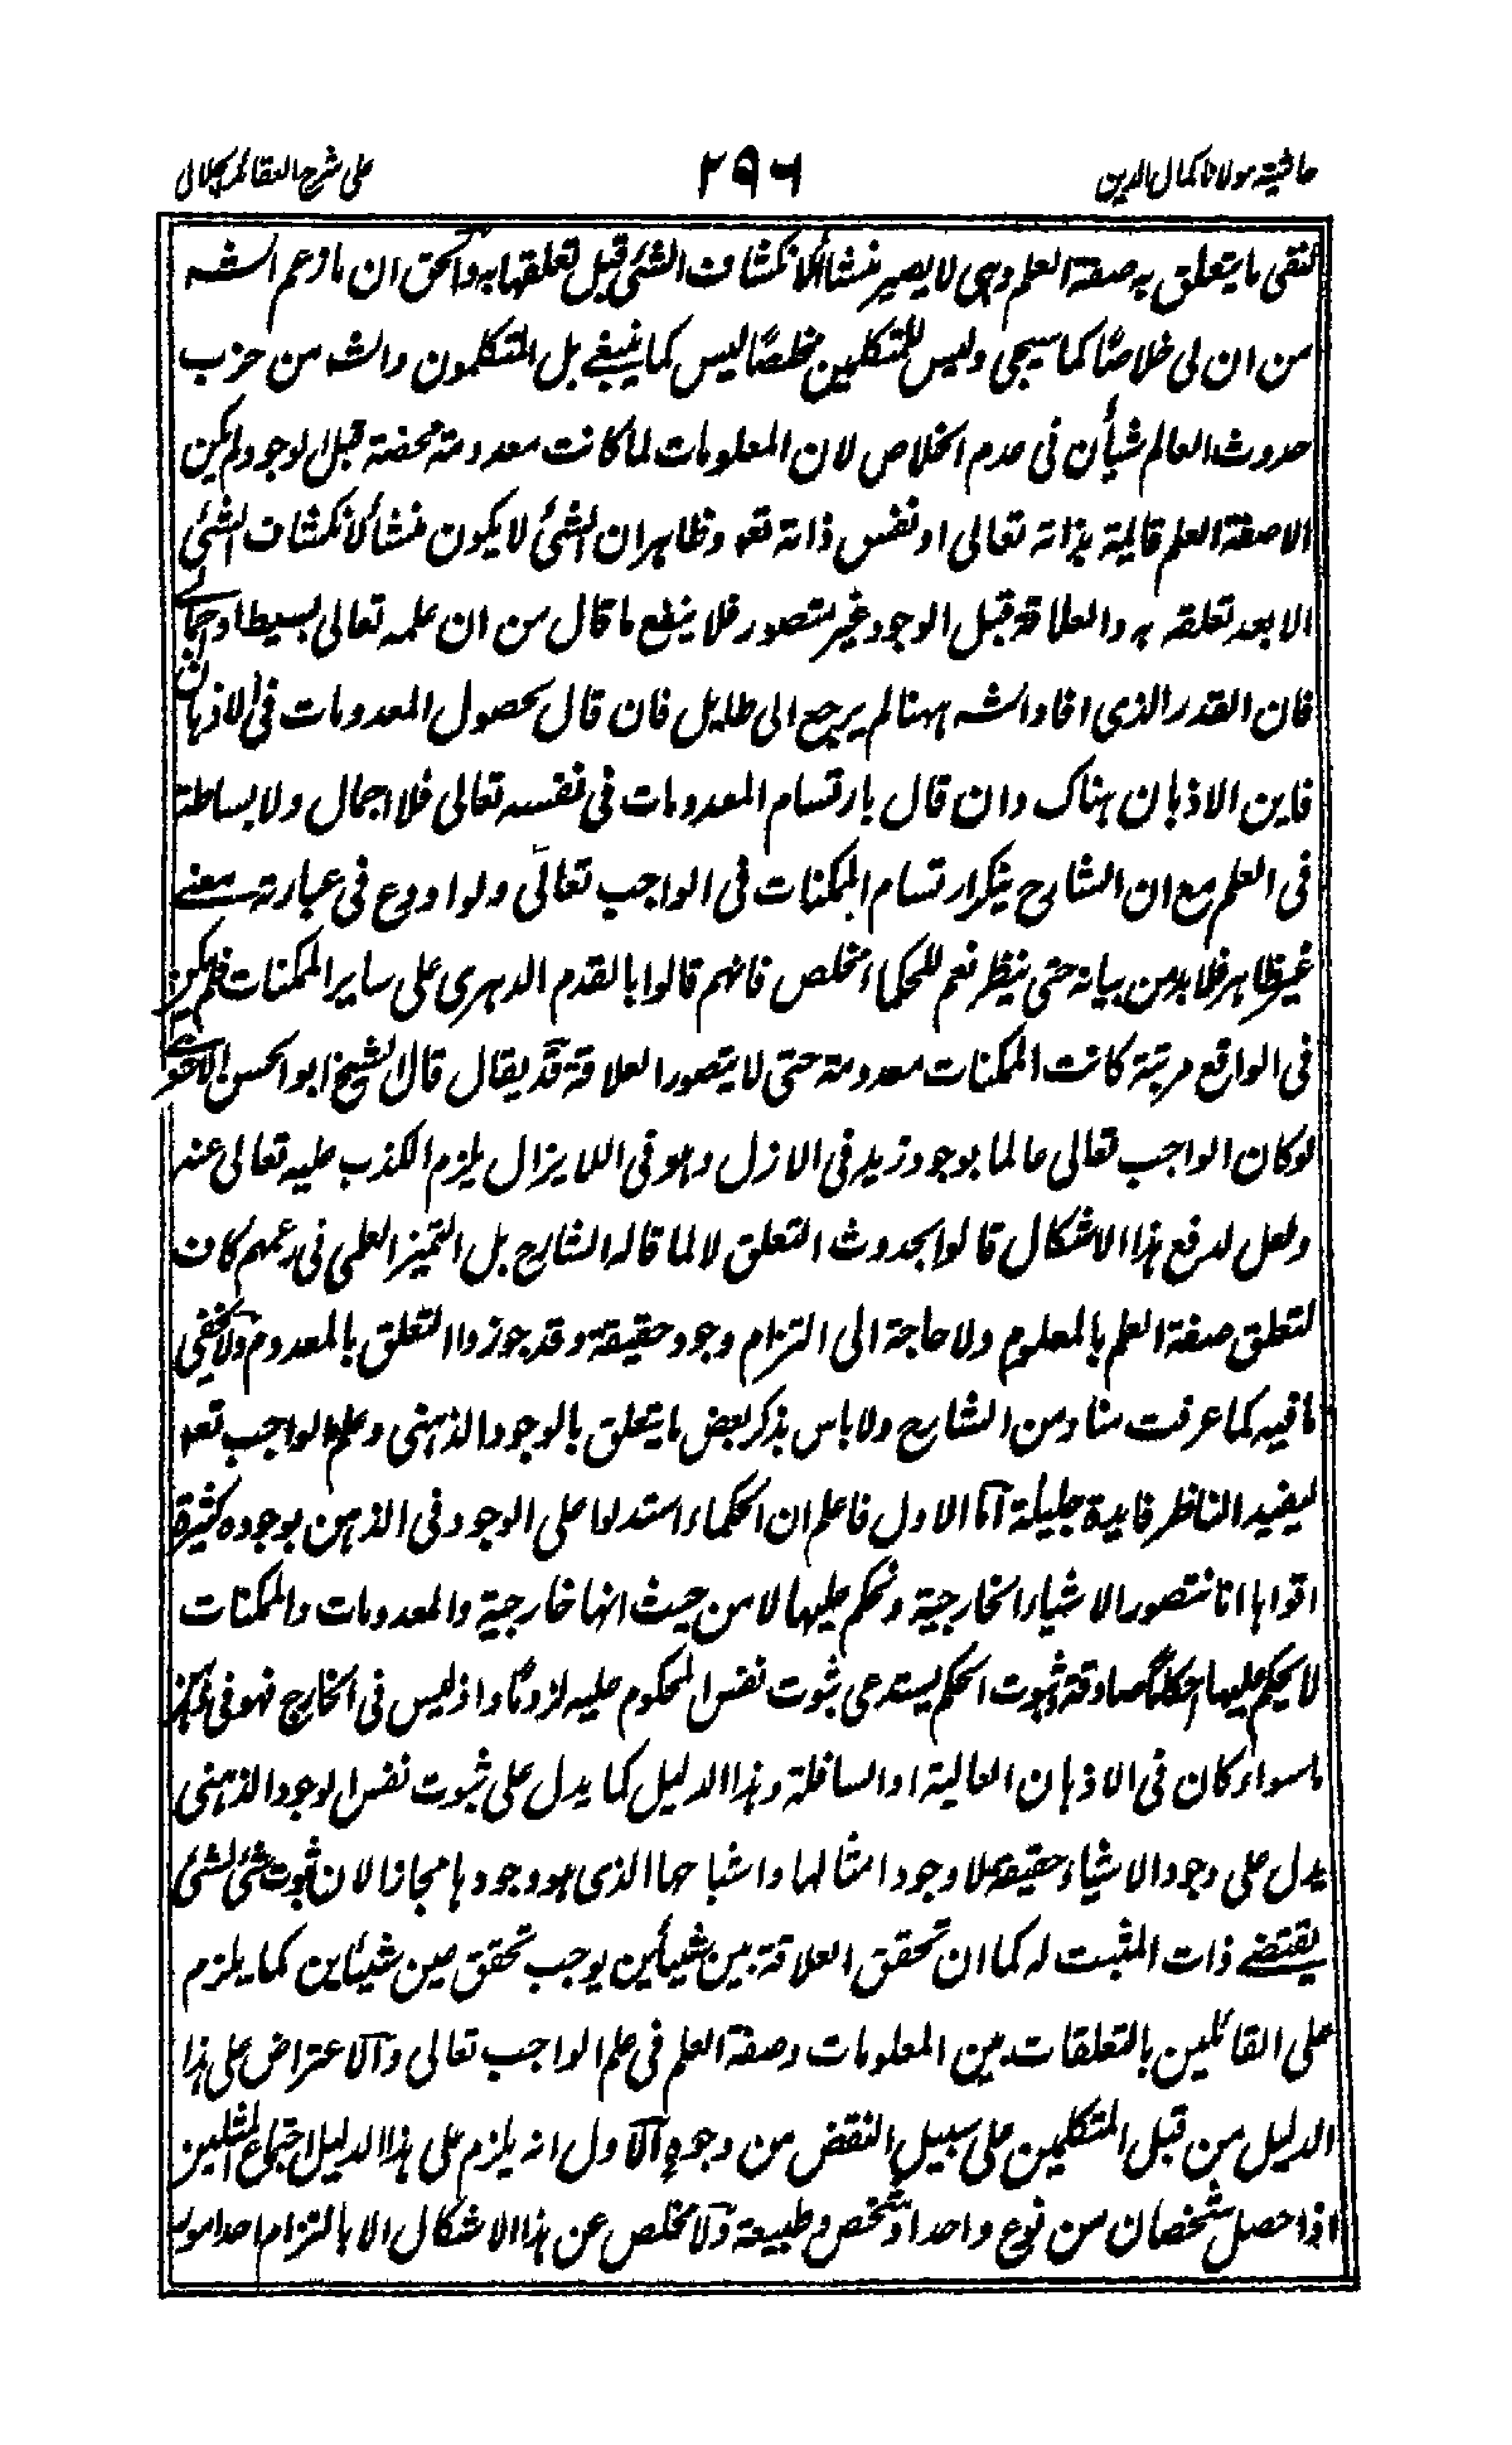 حاشية مولانا كمال الدين ٢٩٦ على شرح العقائد الجلالى
لنفى ما يتعلق به صفة العلم وهى لا يصير منشأ لانكشاف الشئ قبل تعلقها به والحق ان ما زعم الشه
من ان لى خلاصًا كما سيجى وليس للمتكلمين مخلصًا ليس كما ينبغى بل المتكلمون والشه من حزب
حدوث العالم شيأن فى عدم الخلاص لان المعلومات لما كانت معدومة محضة قبل الوجود لم يكن
الا صفة العلم قايمة بذاته تعالى او نفس ذاته تعم وظاهر ان الشئ لا يكون منشأ لانكشاف الشئ
الا بعد تعلقه به والعلاقة قبل الوجود غير متصور فلا ينفع ما قال من ان علمه تعالى بسيط اوجمالى
فان القدر الذى افاد الشه ههنا لم يرجع الى طايل فان قال بحصول المعدومات فى الاذهان
فاين الاذهان هناك وان قال بارتسام المعدومات فى نفسه تعالى فلا اجمال ولا بساطة
فى العلم مع ان الشارح ينكر ارتسام الممكنات فى الواجب تعالى ولو اودع فى عبارته معنى
غير ظاهر فلا بد من بيانه حتى ينظر نعم للحكماء مخلص فانهم قالوا بالقدم الدهرى على ساير الممكنات فلم يكن
فى الواقع مرتبة كانت الممكنات معدومة حتى لا يتصور العلاقة قد يقال قال الشيخ ابو الحسن الاشعرى
لو كان الواجب تعالى عالما بوجود زيد فى الازل وهو فى اللا يزال يلزم الكذب عليه تعالى عنه
ولعل لدفع هذا الاشكال قالوا بحدوث التعلق لا لما قاله الشارح بل التميز العلمى فى زعمهم كان
لتعلق صفة العلم بالمعلوم ولا حاجة الى التزام وجود حقيقة وقد جوزوا التعلق بالمعدوم ولا يخفى
ما فيه كما عرفت منا ومن الشارح ولا باس بذكر بعض ما يتعلق بالوجود الذهنى وعلم الواجب تعم
ليفيد الناظر فايدة جليلة اما الاول فاعلم ان الحكماء استدلوا على الوجود فى الذهن بوجوه كثيرة
اقواها انا نتصور الاشياء الخارجية ونحكم عليها لا من حيث انها خارجية والمعدومات والممكنات
لا يحكم عليها احكامًا صادقة وثبوت الحكم يستدعى ثبوت نفس المحكوم عليه لزومًا واذ ليس فى الخارج فهو فى الذهن
ما سواء كان فى الاذهان العالية او السافلة وهذا الدليل كما يدل على ثبوت نفس الوجود الذهنى
يدل على وجود الاشياء حقيقة لا وجود امثالها واشباحها الذى هو وجودها مجازا لان ثبوت شئ لشئ
يقتضى ذات المثبت له كما ان تحقق العلاقة بين شيأين يوجب تحقق عين شيئاين كما يلزم
على القائلين بالتعلقات بين المعلومات وصفة العلم فى علم الواجب تعالى والاعتراض على هذا
الدليل من قبل المتكلمين على سبيل النقض من وجوه الاول انه يلزم على هذا الدليل اجتماع المثلين
اذا حصل شخصان من نوع واحد او شخص وطبيعة ولا مخلص عن هذا الاشكال الا بالتزام احد امور